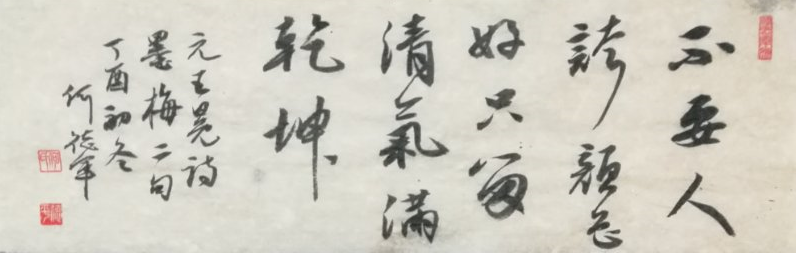 不要人
誇顏色
好只留
清氣滿
乾坤
元王冕詩
墨梅二句
丁酉初冬
何德軍